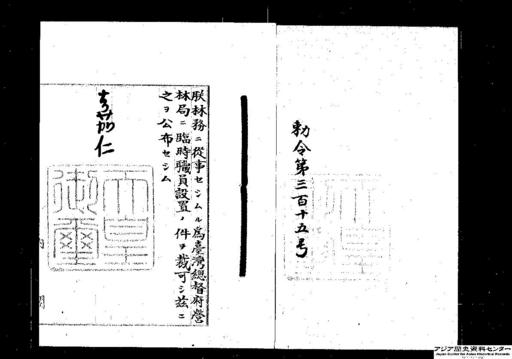 勅令第三百十五号
朕林務ニ從事セシムル爲臺灣總督府營
林局ニ臨時職員設置ノ件ヲ裁可シ茲ニ
之ヲ公布セシム
嘉仁
天皇
御璽
アジア歴史資料センター
Japan Center for Asian Historical Records